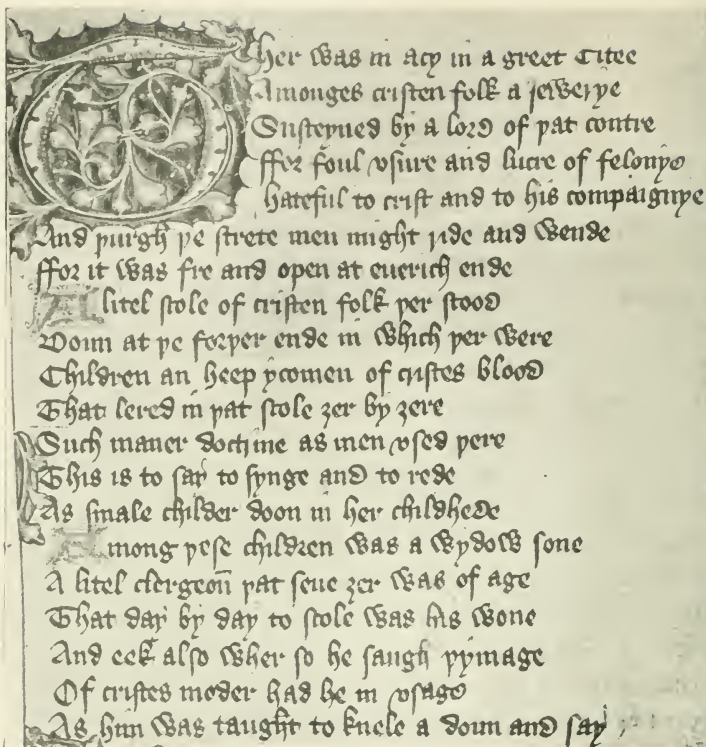 Ther was in acy in a greet Citee
Amonges cristen folk a jewerye
Susteyned by a lord of þat contre
ffor foul vsure and lucre of felonye
hateful to crist and to his compaignye
And þurgh þe strete men might ride and wende
ffor it was fre and open at euerich ende
A litel scole of cristen folk þer stood
Doun at þe ferþer ende in which þer were
Children an heep ycomen of cristes blood
That lered in þat scole ȝer by ȝere
Such maner doctrine as men vsed þere
This is to say to synge and to rede
As smale childer doon in her childhede
Among þese children was a wydow sone
A litel clergeoun þat seue ȝer was of age
That day by day to scole was his wone
And eek also wher so he saugh þymage
Of cristes moder had he in vsage
As him was taught to knele a doun and say